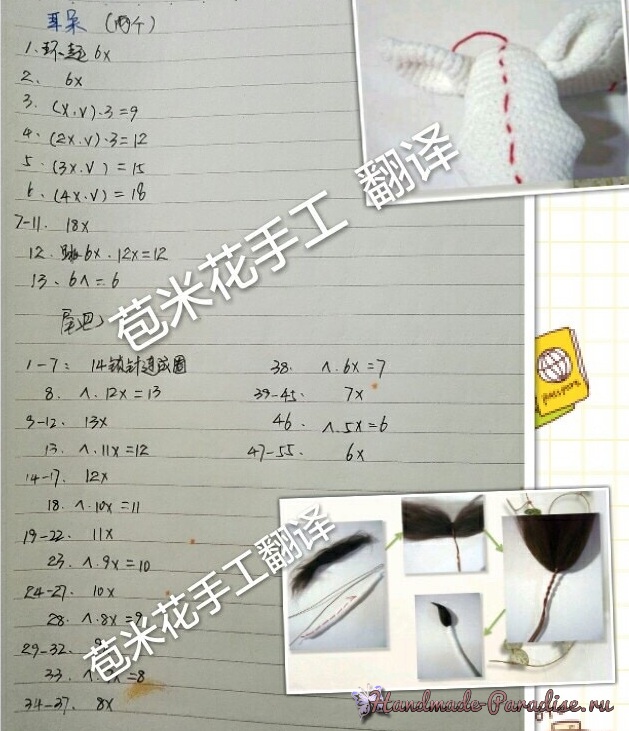 耳朵（两个）
1、环起 6x
2、 6x
3、(x.v)·3=9
4、(2x.v)·3=12
5、(3x.v)=15
6、(4x.v)=18
7-11、18x
12、跳6x.12x=12
13、6∧=6
尾巴
1-7: 14锁针连成圈
8、∧.12x=13
9-12、13x
13、∧.11x=12
14-17、12x
18、∧.10x=11
19-22、11x
23、∧.9x=10
24-27、10x
28、∧.8x=9
29-32、
33、∧. x=8
34-37、8x
38、∧.6x=7
39-45、7x
46、∧.5x=6
47-55、6x
苞米花手工 翻译
苞米花手工翻译
passport
Handmade-Paradise.ru